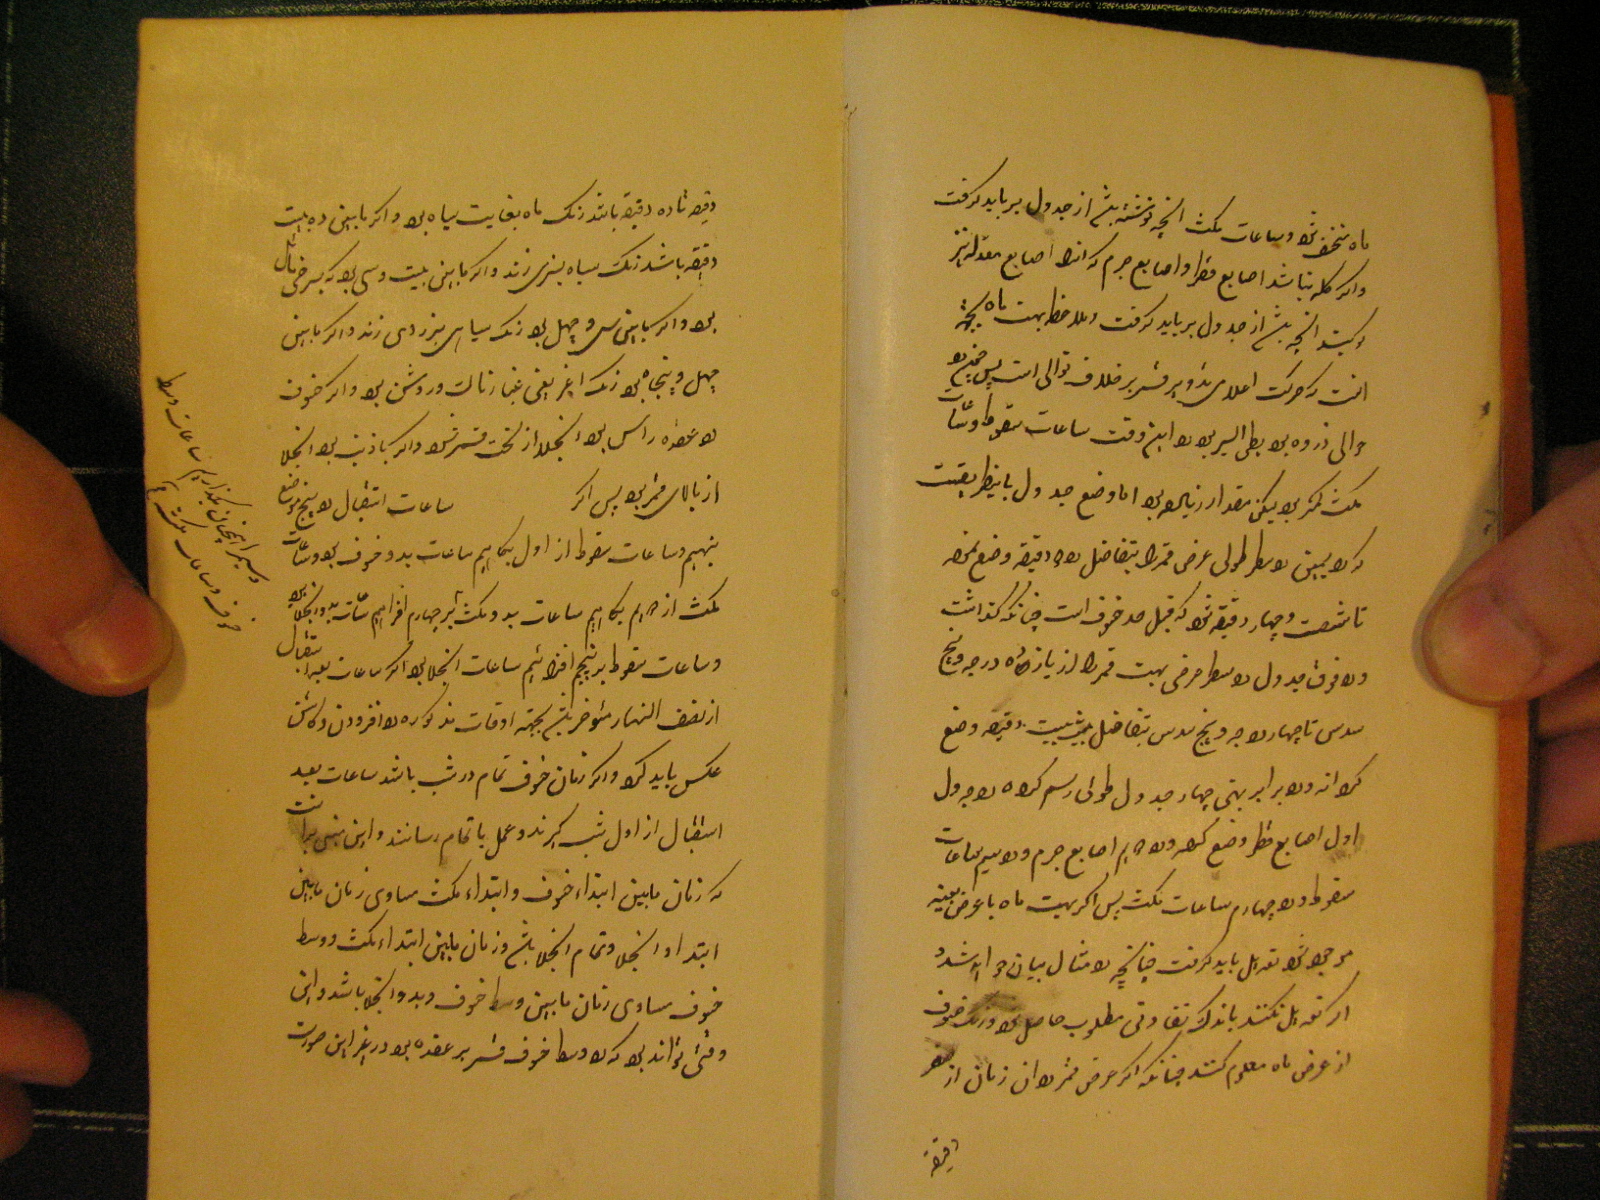 ماه منخسف شود و ساعات مکث آنچه نوشته باشد از جدول بر باید گرفت
و اگر کله نباشد اصابع قطر و اصابع جرم که آنرا اصابع معدله نیز
گویند آنچه باشد از جدول بر باید گرفت و بهت ماه
آنست که حرکت اعلای تدویر قمر بر خلاف توالی است پس چون
حوالی ذروه بود بطی السیر بود و در این وقت ساعات سقوط و ساعات
مکث قمر بود لیکن مقدار زیاد بود اما وضع جدول باینطریقست
که در یمین در سطر طولی عرض قمر را بتفاضل دو دقیقه وضع نموده
تا شصت و چهار دقیقه شود که قبل حد خسوف است چنانکه گذشت
و در فوق جدول در سطر عرضی بهت قمر را از یازده درجه و پنج
سدس تا چهارده درجه و پنج سدس بتفاضل بیست بیست دقیقه وضع
کرده اند و در برابر بهتی چهار جدول طولی رسم کرده در جدول
اول اصابع قطر وضع کرده و در دویم اصابع جرم و در سیم ساعات
سقوط و در چهارم ساعات مکث پس اگر بهت ماه با عرض بعینه
موجود شود تعدیل باید گرفت چنانچه در مثال بیان خواهد شد و
اگر تعدیل نکنند باندک تفاوتی مطلوب حاصل شود و رنگ خسوف
از عرض ماه معلوم کنند چنانکه اگر عرض قمر در آن زمان از صفر
دقیقه
دقیقه تا ده دقیقه باشد رنگ ماه بغایت سیاه بود و اگر مابین ده بیست
دقیقه باشد رنگ سیاه بسبزی زند و اگر مابین بیست و سی بود که بسرخی مایل
بود و اگر مابین سی و چهل بود رنگ سیاهی بزردی زند و اگر مابین
چهل و پنجاه بود رنگ اغبر یعنی غبارناک و روشن بود و اگر خسوف
در عقده راس بود انجلا از تحت قمر شود و اگر با ذنب بود انجلا
از بالای قمر بود پس اگر ساعات استقبال در پنج موضع
بنهیم و ساعات سقوط از اول بکاهیم ساعات بدو خسوف بود و ساعات
مکث از دویم بکاهیم ساعات بدو مکث بر چهارم افزاییم ساعات بدو انجلا بود
و ساعات سقوط بر پنجم افزائیم ساعات انجلا بود اگر ساعات بعد استقبال
از نصف النهار مؤخر باشد بجهته اوقات مذکوره در افزودن و کاستن
عکس باید کرد و اگر زمان خسوف تمام در شب باشد ساعات بعد
استقبال از اول شب گیرند و عمل باتمام رسانند و این مبنی بر آنست
که زمان مابین ابتداء خسوف و ابتداء مکث مساوی زمان مابین
ابتداء انجلا و تمام انجلا باشد و زمان مابین ابتداء مکث و وسط
خسوف مساوی زمان مابین وسط خسوف و بدو انجلا باشد و این
وقتی تواند بود که در وسط خسوف قمر بر عقده بود در غیر این صورت
و سیم را همچنان بگذاریم ساعات وسط
خسوف و ساعات مکث